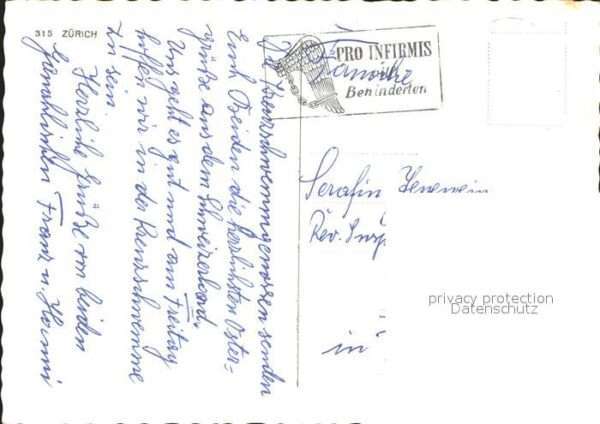 315 ZÜRICH
PRO INFIRMIS
Behinderten
Familie
Serafin
Rev. Insp.
in
senden
Euch Beiden die herzlichsten Oster-
grüße aus dem Schweizerland.
Uns geht es gut und am Freitag
hoffen wir in der Kreuzschwemme
zu sein
Herzliche Grüße von beiden
Franz u. Hanni
privacy protection
Datenschutz